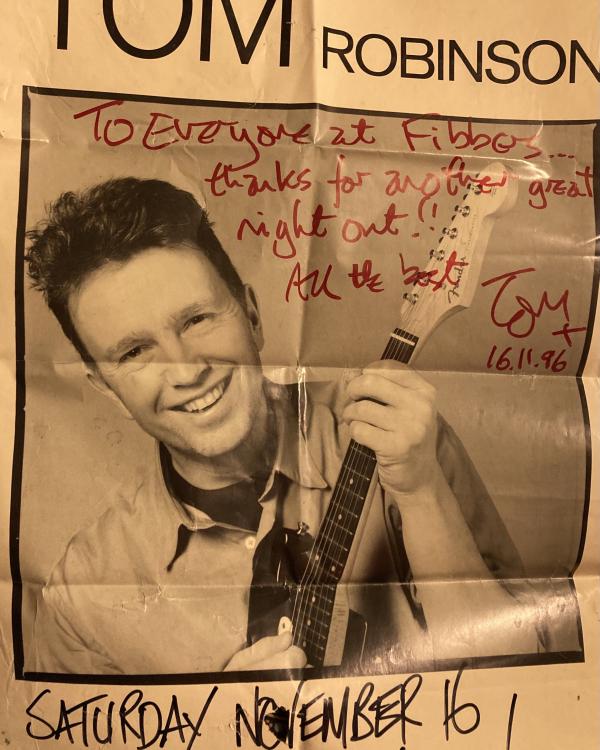 TOM ROBINSON
To Everyone at Fibbers...
thanks for another great
night out!!
All the best
Tom
x
16.11.96
Fender
SATURDAY NOVEMBER 16